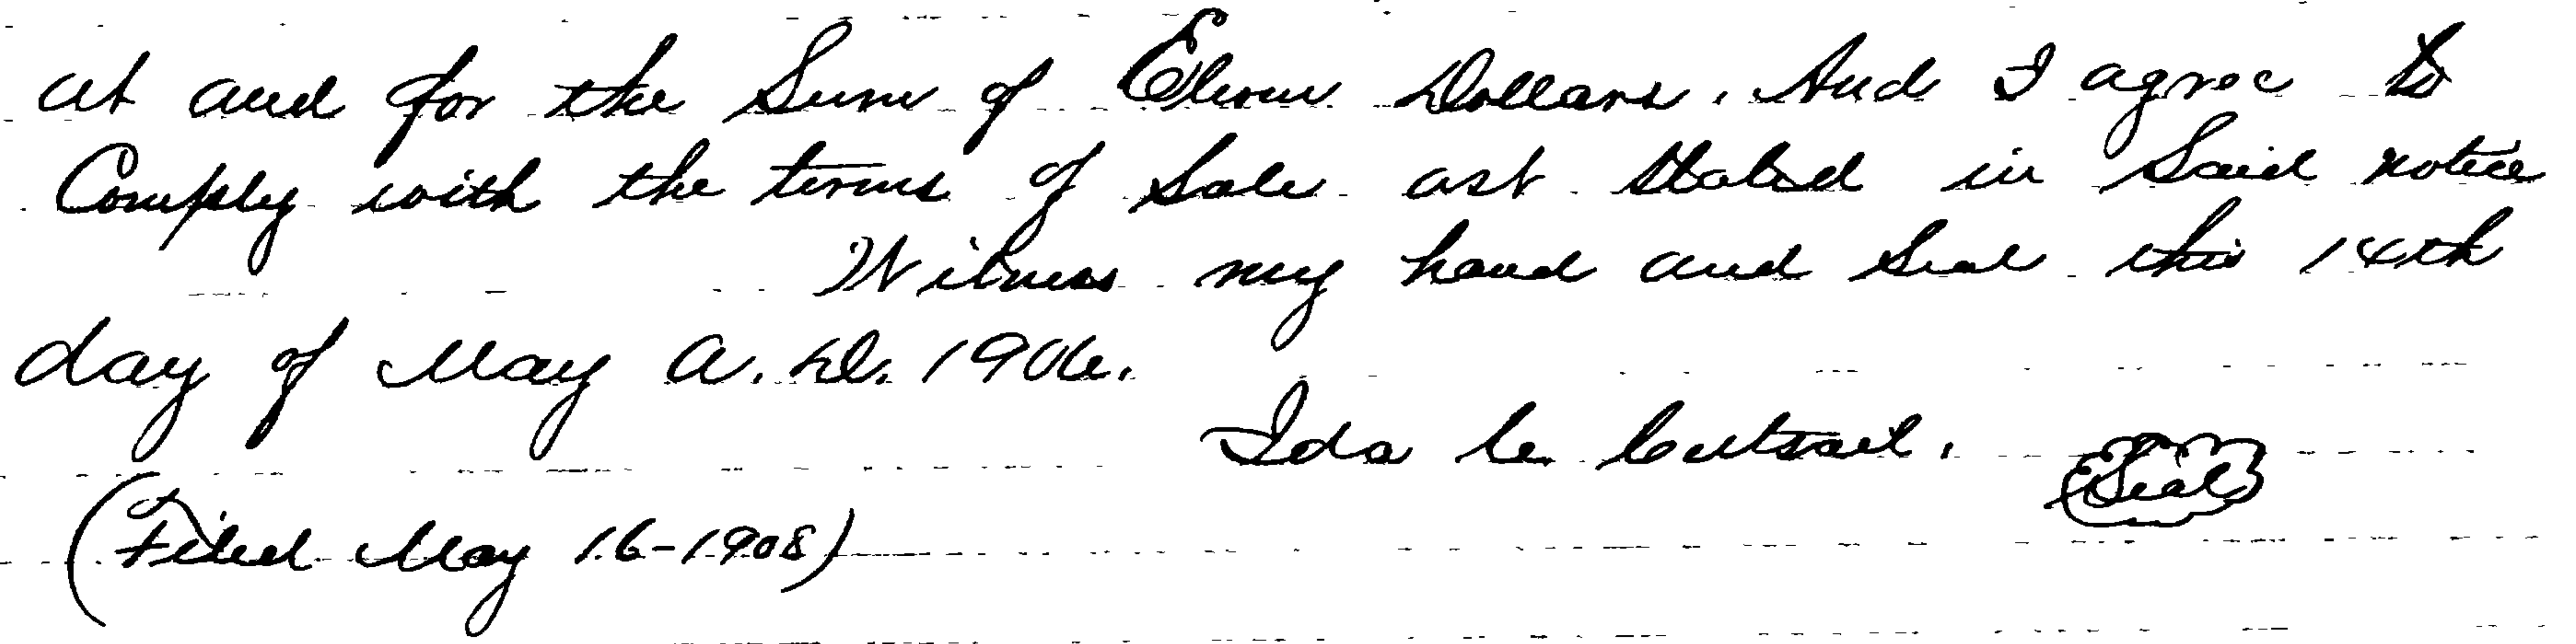 at and for the Sum of Eleven Dollars. And I agree to
Comply with the terms of Sale ast Stated in Said notice
Witness my hand and Seal this 14th
day of May A.D. 1906.
Ida C. Cutsail. Seal
(Filed May 16-1908)